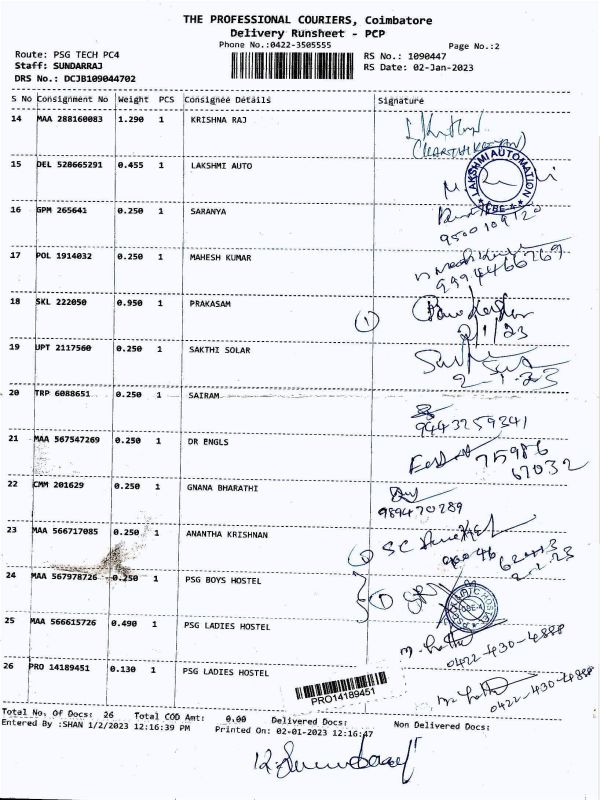 THE PROFESSIONAL COURIERS, Coimbatore
Delivery Runsheet - PCP
Phone No.:0422-3505555
Page No.:2
Route: PSG TECH PC4
RS No.: 1090447
Staff: SUNDARRAJ
RS Date: 02-Jan-2023
DRS No.: DCJB109044702
S No Consignment No Weight PCS Consignee Details Signature
14 MAA 288160083 1.290 1 KRISHNA RAJ
(KARTHIKEYAN)
15 DEL 528665291 0.455 1 LAKSHMI AUTO
LAKSHMI AUTOMATION
CBE-4
16 GPM 265641 0.250 1 SARANYA
9500109120
17 POL 1914032 0.250 1 MAHESH KUMAR
9994466269
18 SKL 222050 0.950 1 PRAKASAM
1
2/1/23
19 UPT 2117560 0.250 1 SAKTHI SOLAR
2-1-23
20 TRP 6088651 0.250 1 SAIRAM
9443259341
21 MAA 567547269 0.250 1 DR ENGLS
75986
67032
22 CMM 201629 0.250 1 GNANA BHARATHI
9894720289
23 MAA 566717085 0.250 1 ANANTHA KRISHNAN
24 MAA 567978726 0.250 1 PSG BOYS HOSTEL
25 MAA 566615726 0.490 1 PSG LADIES HOSTEL
0422-430-4888
26 PRO 14189451 0.130 1 PSG LADIES HOSTEL
PRO14189451
0422-430-4888
Total No. Of Docs: 26 Total COD Amt: 0.00 Delivered Docs: Non Delivered Docs:
Entered By :SHAN 1/2/2023 12:16:39 PM Printed On: 02-01-2023 12:16:47